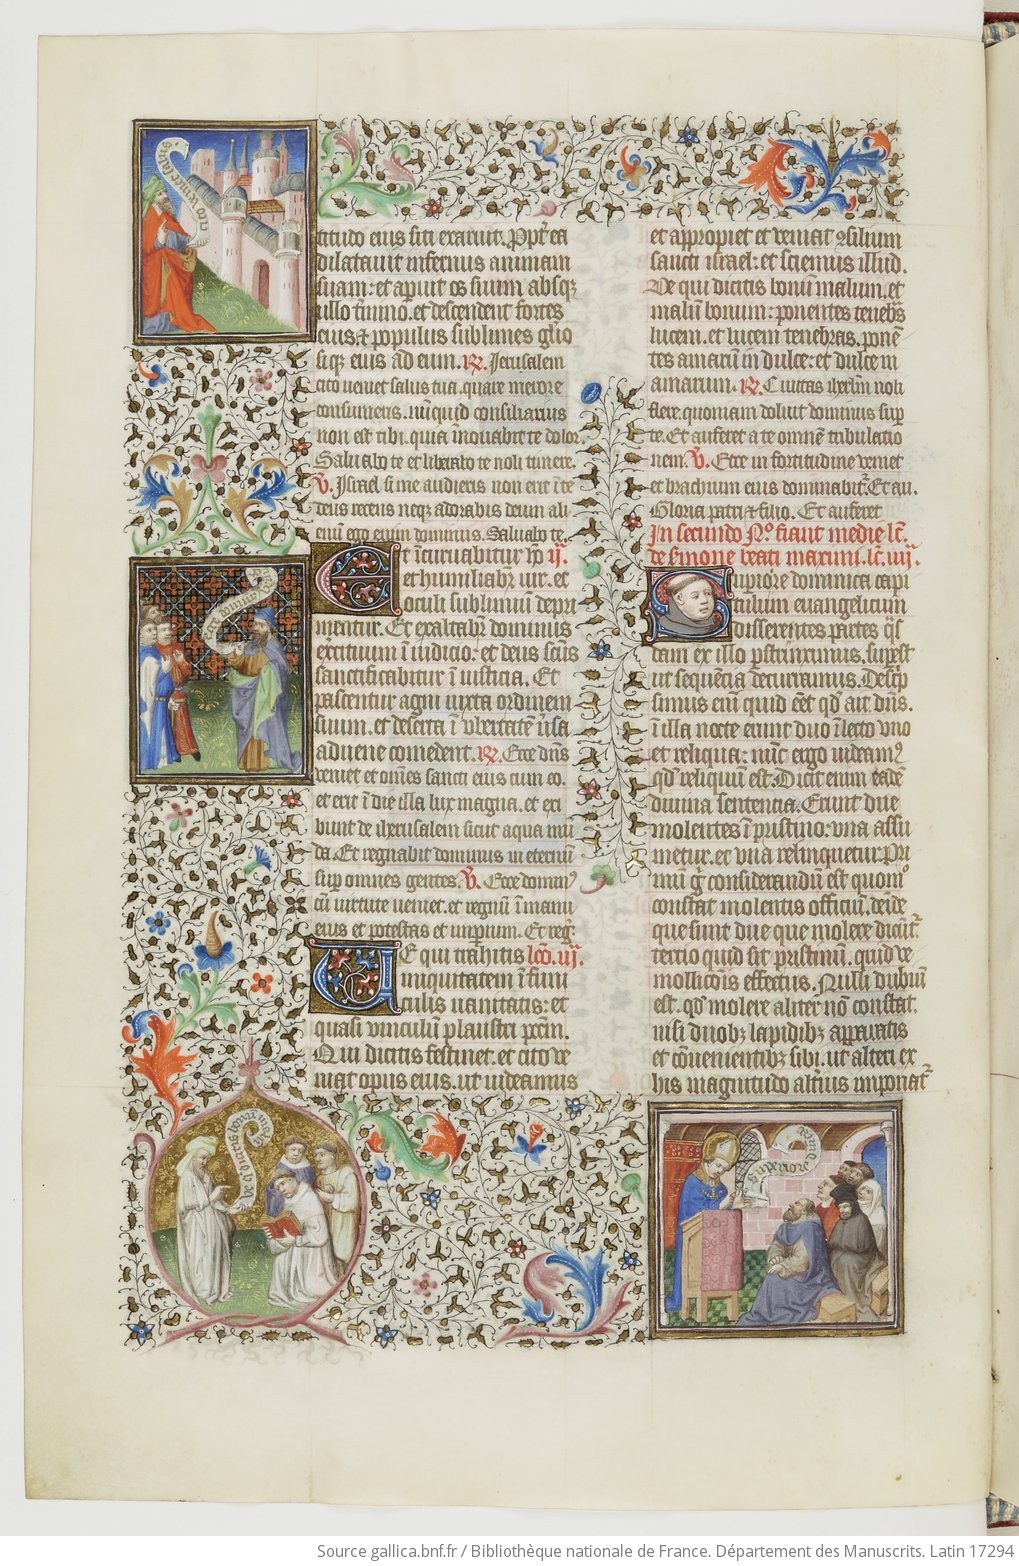 titudo eius siti exaruit. Ppt̄ea
dilatauit infernus animam
suam: et aperuit os suum absq;
ullo t̄mino. et descendent fortes
eius ⁊ populus sublimes glio
siq; eius ad eum. ℟. Jerusalem
cito ueniet salus tua. quare merore
consumeris. nūquid consiliarius
non est tibi. quia ī̄nouabit te dolor.
Saluabo te et liberabo te noli timere.
℣. Israel si me audieris non erit ī te
deus recens neq; adorabis deum ali
enū ego enim dominus. Saluabo te.
Et īcuruabitur hō ij.
et humiliabit̄ uir. et
oculi sublimiū depri
mentur. Et exaltabit̄ dominus
exercituum ī iudicio: et deus sc̄us
sanctificabitur ī iusticia. Et
pascentur agni iuxta ordinem
suum. et deserta ī ubertatē uersa
aduene comedent. ℟. Ecce dn̄s
ueniet et om̄es sancti eius cum eo.
et erit ī die illa lux magna. et exi
bunt de ihrusalem sicut aqua mū
da. Et regnabit dominus in eternū
sup omnes gentes. ℣. Ecce domin⁹
cū uirtute ueniet. et regnū ī manu
eius et potestas et imperium. Et reg.
Ve qui trahitis lc̄o. iij.
iniquitatem ī funi
culis uanitatis: et
quasi vinculū plaustri pctm̄.
Qui dicitis festinet. et cito ve
niat opus eius. ut uideamus
et appropiet et veniat ꝯsilium
sancti israel: et sciemus illud.
Ve qui dicitis bonū malum. et
malū bonum: ponentes tenebs
lucem. et lucem tenebras. ponē
tes amarū in dulce: et dulce in
amarum. ℟. Ciuitas ihrlm̄ noli
flere. quoniam doluit dominus sup
te. Et auferet a te omnē tribulatio
nem. ℣. Ecce in fortitudine veniet
et brachium eius dominabit̄. Et au.
Gloria patri ⁊ filio. Et auferet
In secundo N.º fiant medie lc̄.
de smone beati maximi. lc̄. iiij.
Supiore dominica capi
tulum euangelicum
disserentes partes q̄s
dam ex illo p̄strinximus. supest
ut sequētia decurramus. Descp
simus em̄ quid eēt qd̄ ait dn̄s.
ī illa nocte erunt duo ī lecto vno
et reliqua: nūc ergo uideam⁹
qd̄ reliquū est. Dicit enim eadē
diuina sententia. Erunt due
molentes ī pristino: vna assu
metur. et vna relinquetur. Pri
mū g̊ considerandū est quom̊
constat molentis officiū. deīde
que sunt due que molere dicūt̄.
tercio quid sit pristinū. quid ve
mollicōis effectus. Nulli dubiū
est. qd̄ molere aliter nō constat.
nisi duob; lapidib; apparatis
et cōuenientib; sibi. ut alteri ex
his magnitudo alt̄ius imponat̄
Source gallica.bnf.fr / Bibliothèque nationale de France. Département des Manuscrits. Latin 17294